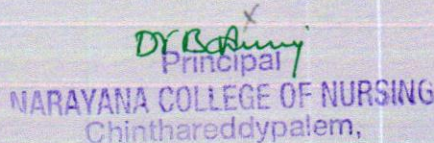 Principal
NARAYANA COLLEGE OF NURSING
Chinthareddypalem,